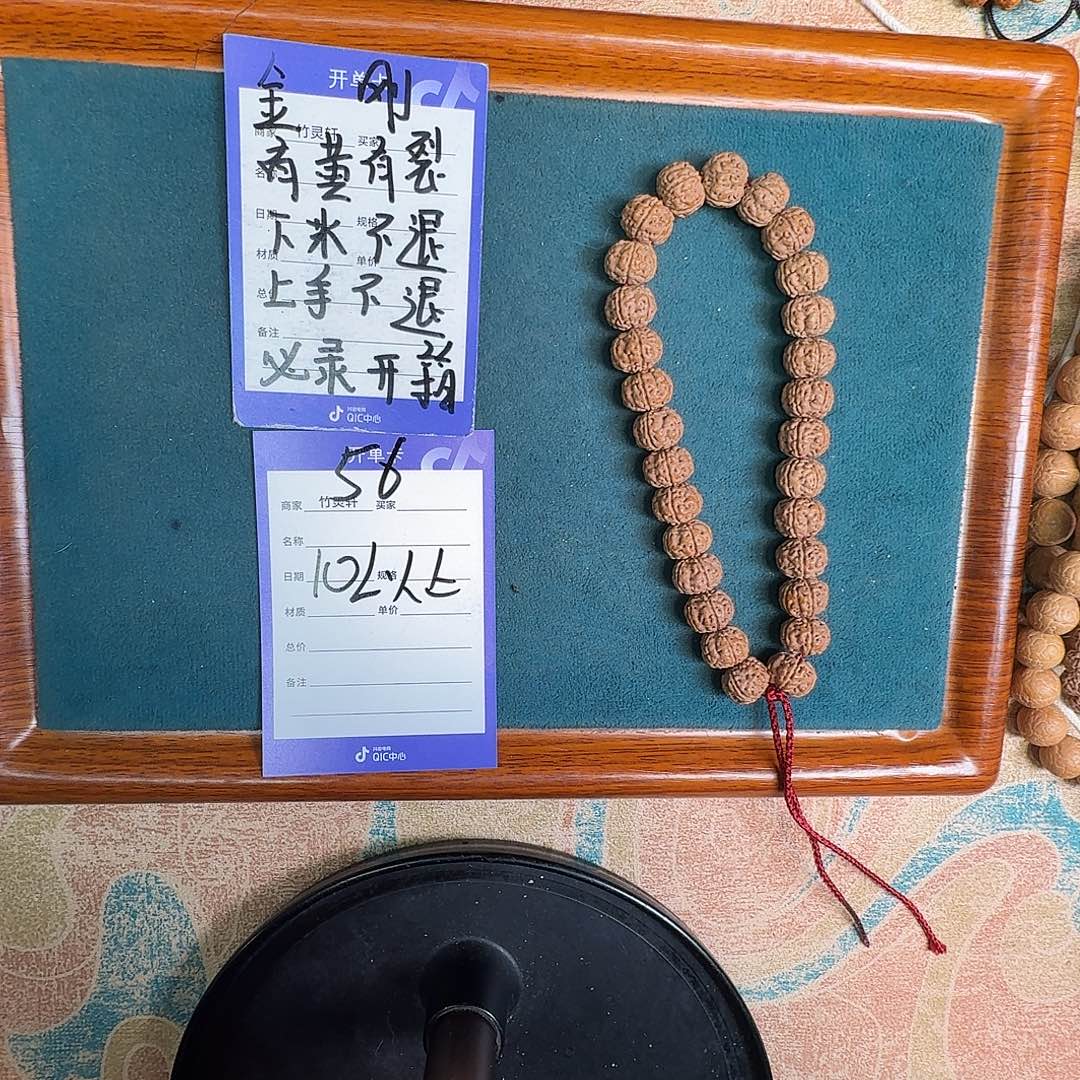 开单卡
金刚
商家 竹灵轩 买家
有黄有裂
日期 规格
下水不退
材质 单价
上手不退
备注
必录开箱
抖音电商
QIC中心
开单卡
56
商家 竹灵轩 买家
名称
日期 规格
10人上
材质 单价
总价
备注
抖音电商
QIC中心